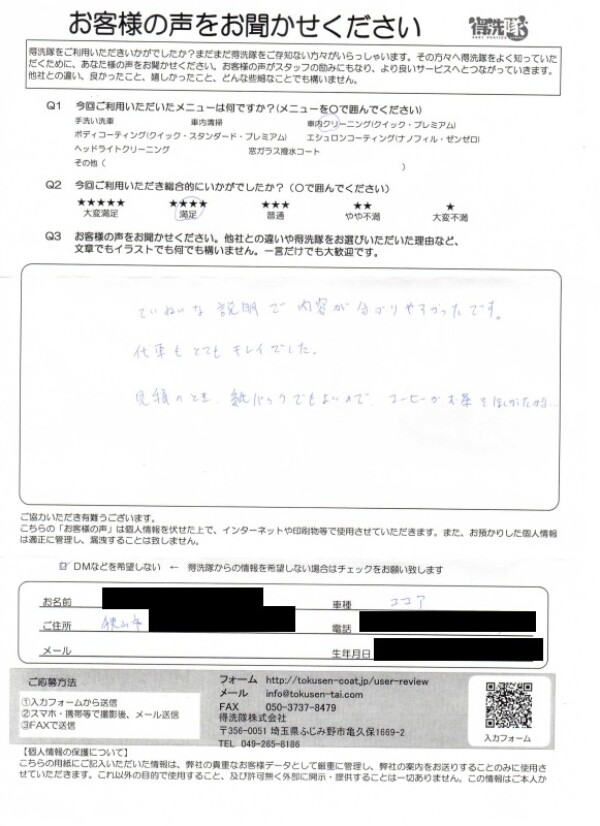 お客様の声をお聞かせください
得洗隊
得洗隊をご利用いただきいかがでしたか?まだまだ得洗隊をご存知ない方々がいらっしゃいます。その方々へ得洗隊をよく知っていた
だくために、あなた様の声をお聞かせください。お客様の声がスタッフの励みにもなり、より良いサービスへとつながっていきます。
他社との違い、良かったこと、嬉しかったこと、どんな些細なことでも構いません。
Q1 今回ご利用いただいたメニューは何ですか?(メニューを〇で囲んでください)
手洗い洗車 車内清掃 車内クリーニング(クイック・プレミアム)
ボディコーティング(クイック・スタンダード・プレミアム) エシュロンコーティング(ナノフィル・ゼンゼロ)
ヘッドライトクリーニング 窓ガラス撥水コート
その他( )
Q2 今回ご利用いただき総合的にいかがでしたか?(〇で囲んでください)
★★★★★ ★★★★ ★★★ ★★ ★
大変満足 満足 普通 やや不満 大変不満
Q3 お客様の声をお聞かせください。他社との違いや得洗隊をお選びいただいた理由など、
文章でもイラストでも何でも構いません。一言だけでも大歓迎です。
ていねいな説明で内容が分かりやすかったです。
代車もとてもキレイでした。
見積のとき、紙パックでもよいので、コーヒーかお茶をほしかったかな…
ご協力いただき有難うございます。
こちらの「お客様の声」は個人情報を伏せた上で、インターネットや印刷物等で使用させていただきます。また、お預かりした個人情報
は適正に管理し、漏洩することは致しません。
☑ DMなどを希望しない ← 得洗隊からの情報を希望しない場合はチェックをお願い致します
お名前 車種 ココア
ご住所 狭山市 電話
メール 生年月日
ご応募方法
①入力フォームから送信
②スマホ・携帯等で撮影後、メール送信
③FAXで送信
フォーム http://tokusen-coat.jp/user-review
メール info@tokusen-tai.com
FAX 050-3737-8479
得洗隊株式会社
〒356-0051 埼玉県ふじみ野市亀久保1669-2
TEL 049-265-8186
入力フォーム
【個人情報の保護について】
こちらの用紙にご記入いただいた情報は、弊社の貴重なお客様データとして厳重に管理し、弊社の案内をお送りすることのみに使用さ
せていただきます。これ以外の目的で使用すること、及び許可無く外部に開示・提供することは一切ありません。この情報はご本人か